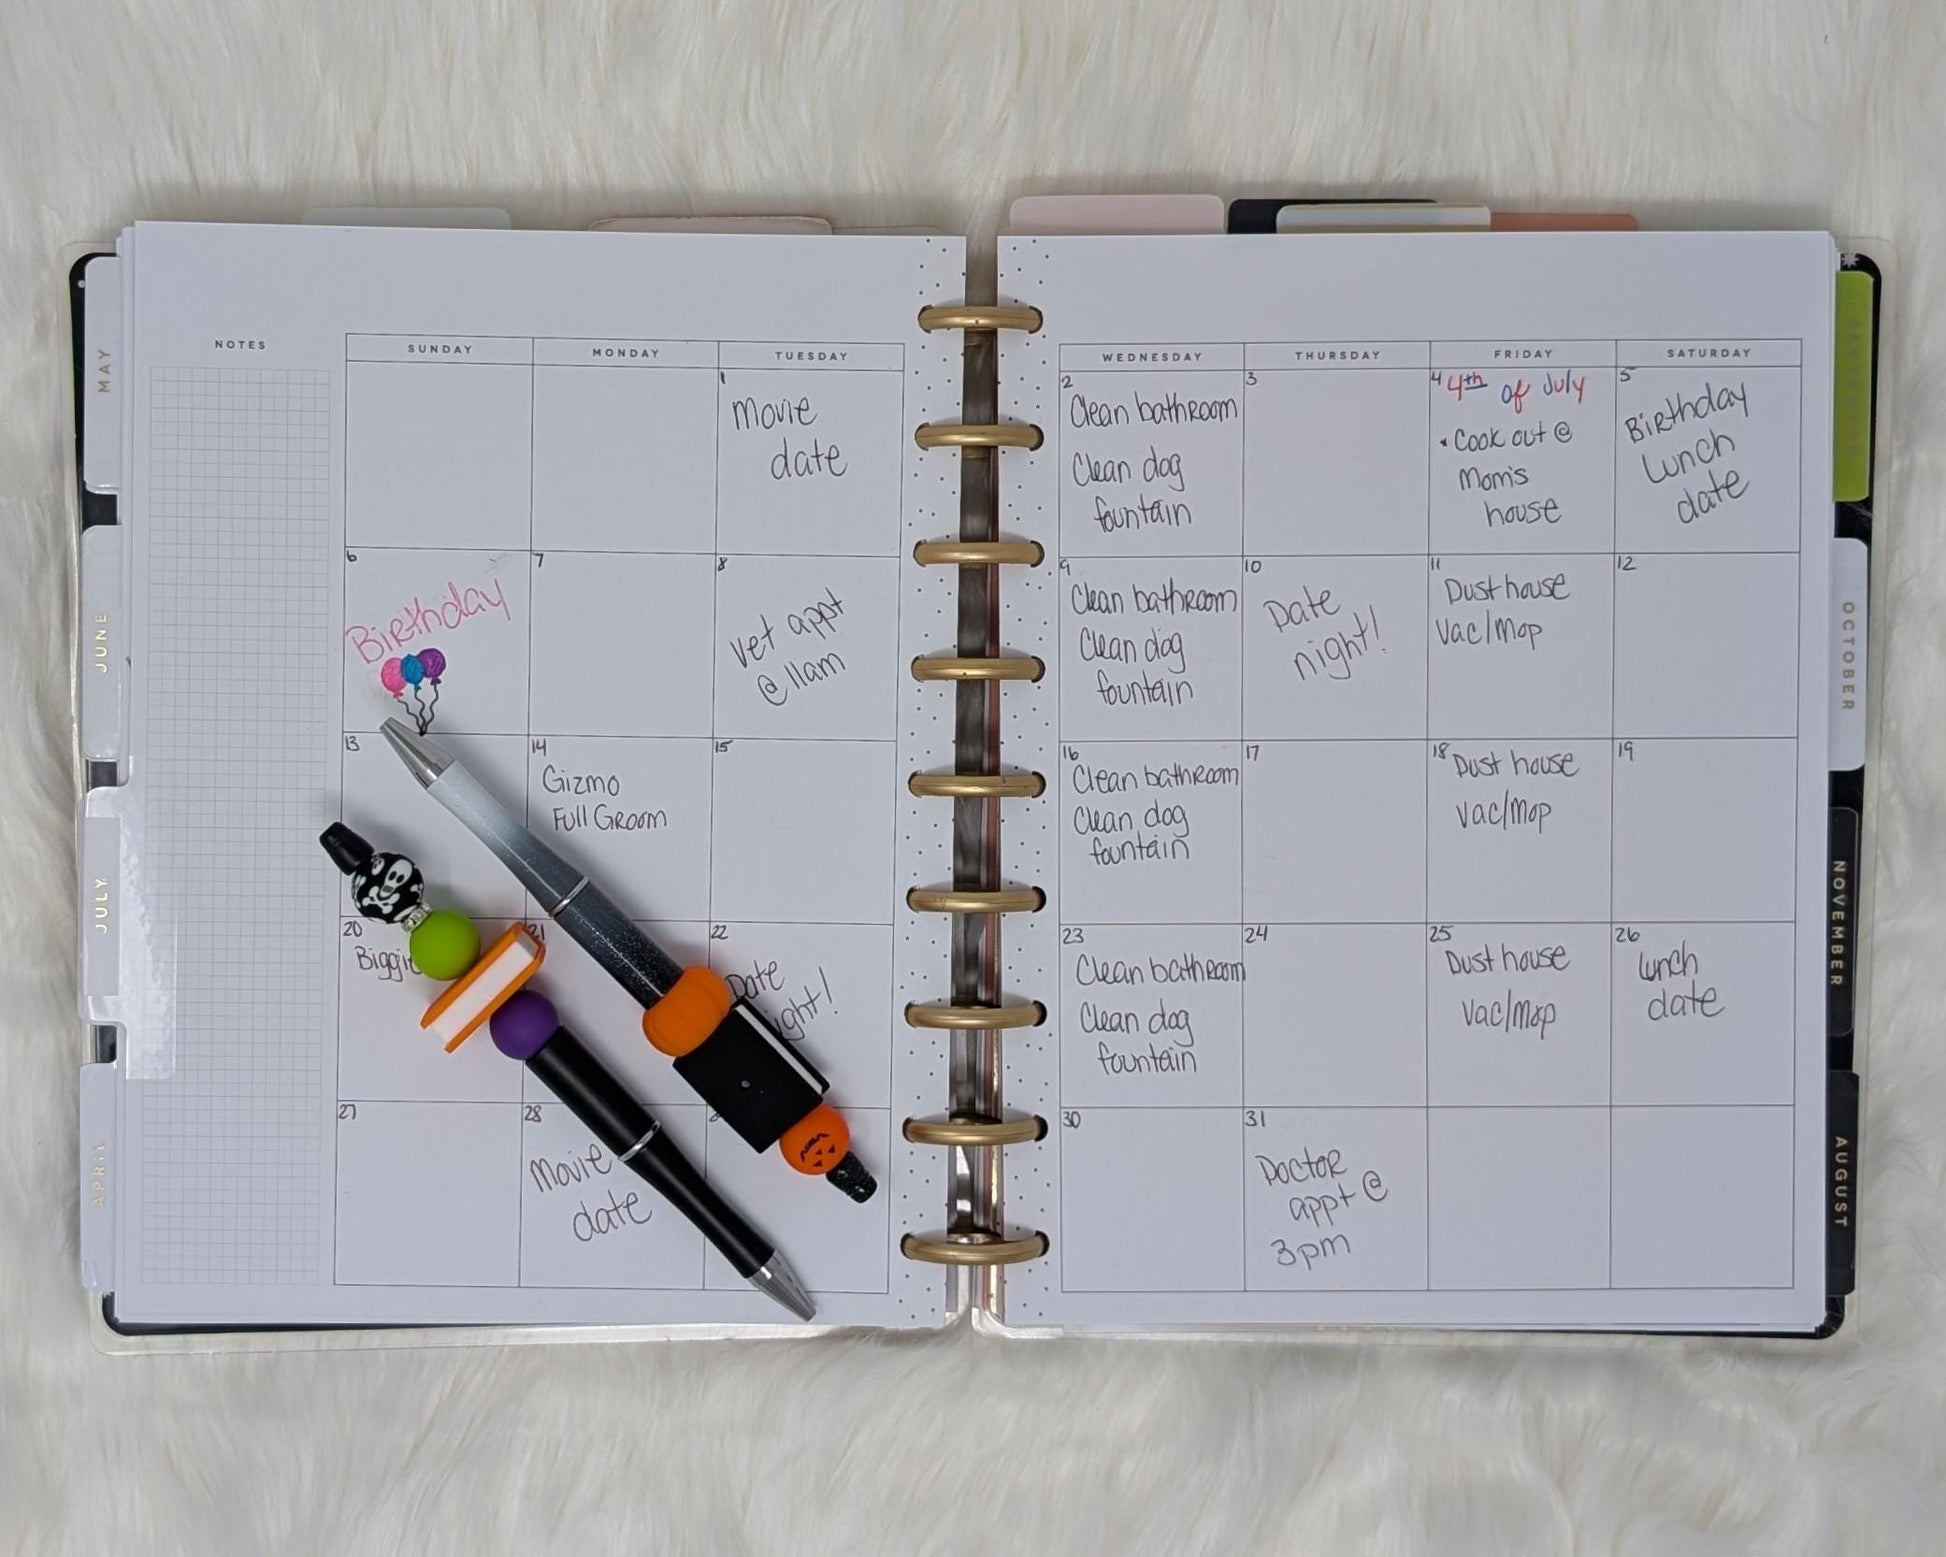 NOTES
SUNDAY
MONDAY
TUESDAY
1
Movie
date
6
Birthday
7
8
Vet appt
@ 11am
13
14
Gizmo
Full Groom
15
20
21
22
Date
27
28
Movie
date
WEDNESDAY
THURSDAY
FRIDAY
SATURDAY
2
Clean bathroom
Clean dog
fountain
3
4
4th of July
• Cook out @
Mom's
house
5
Birthday
Lunch
date
9
Clean bathroom
Clean dog
fountain
10
Date
night!
11
Dust house
Vac/Mop
12
16
Clean bathroom
Clean dog
fountain
17
18
Dust house
Vac/Mop
19
23
Clean bathroom
Clean dog
fountain
24
25
Dust house
Vac/Mop
26
Lunch
date
30
31
Doctor
appt @
3pm
MAY
JUNE
JULY
APRIL
OCTOBER
NOVEMBER
AUGUST